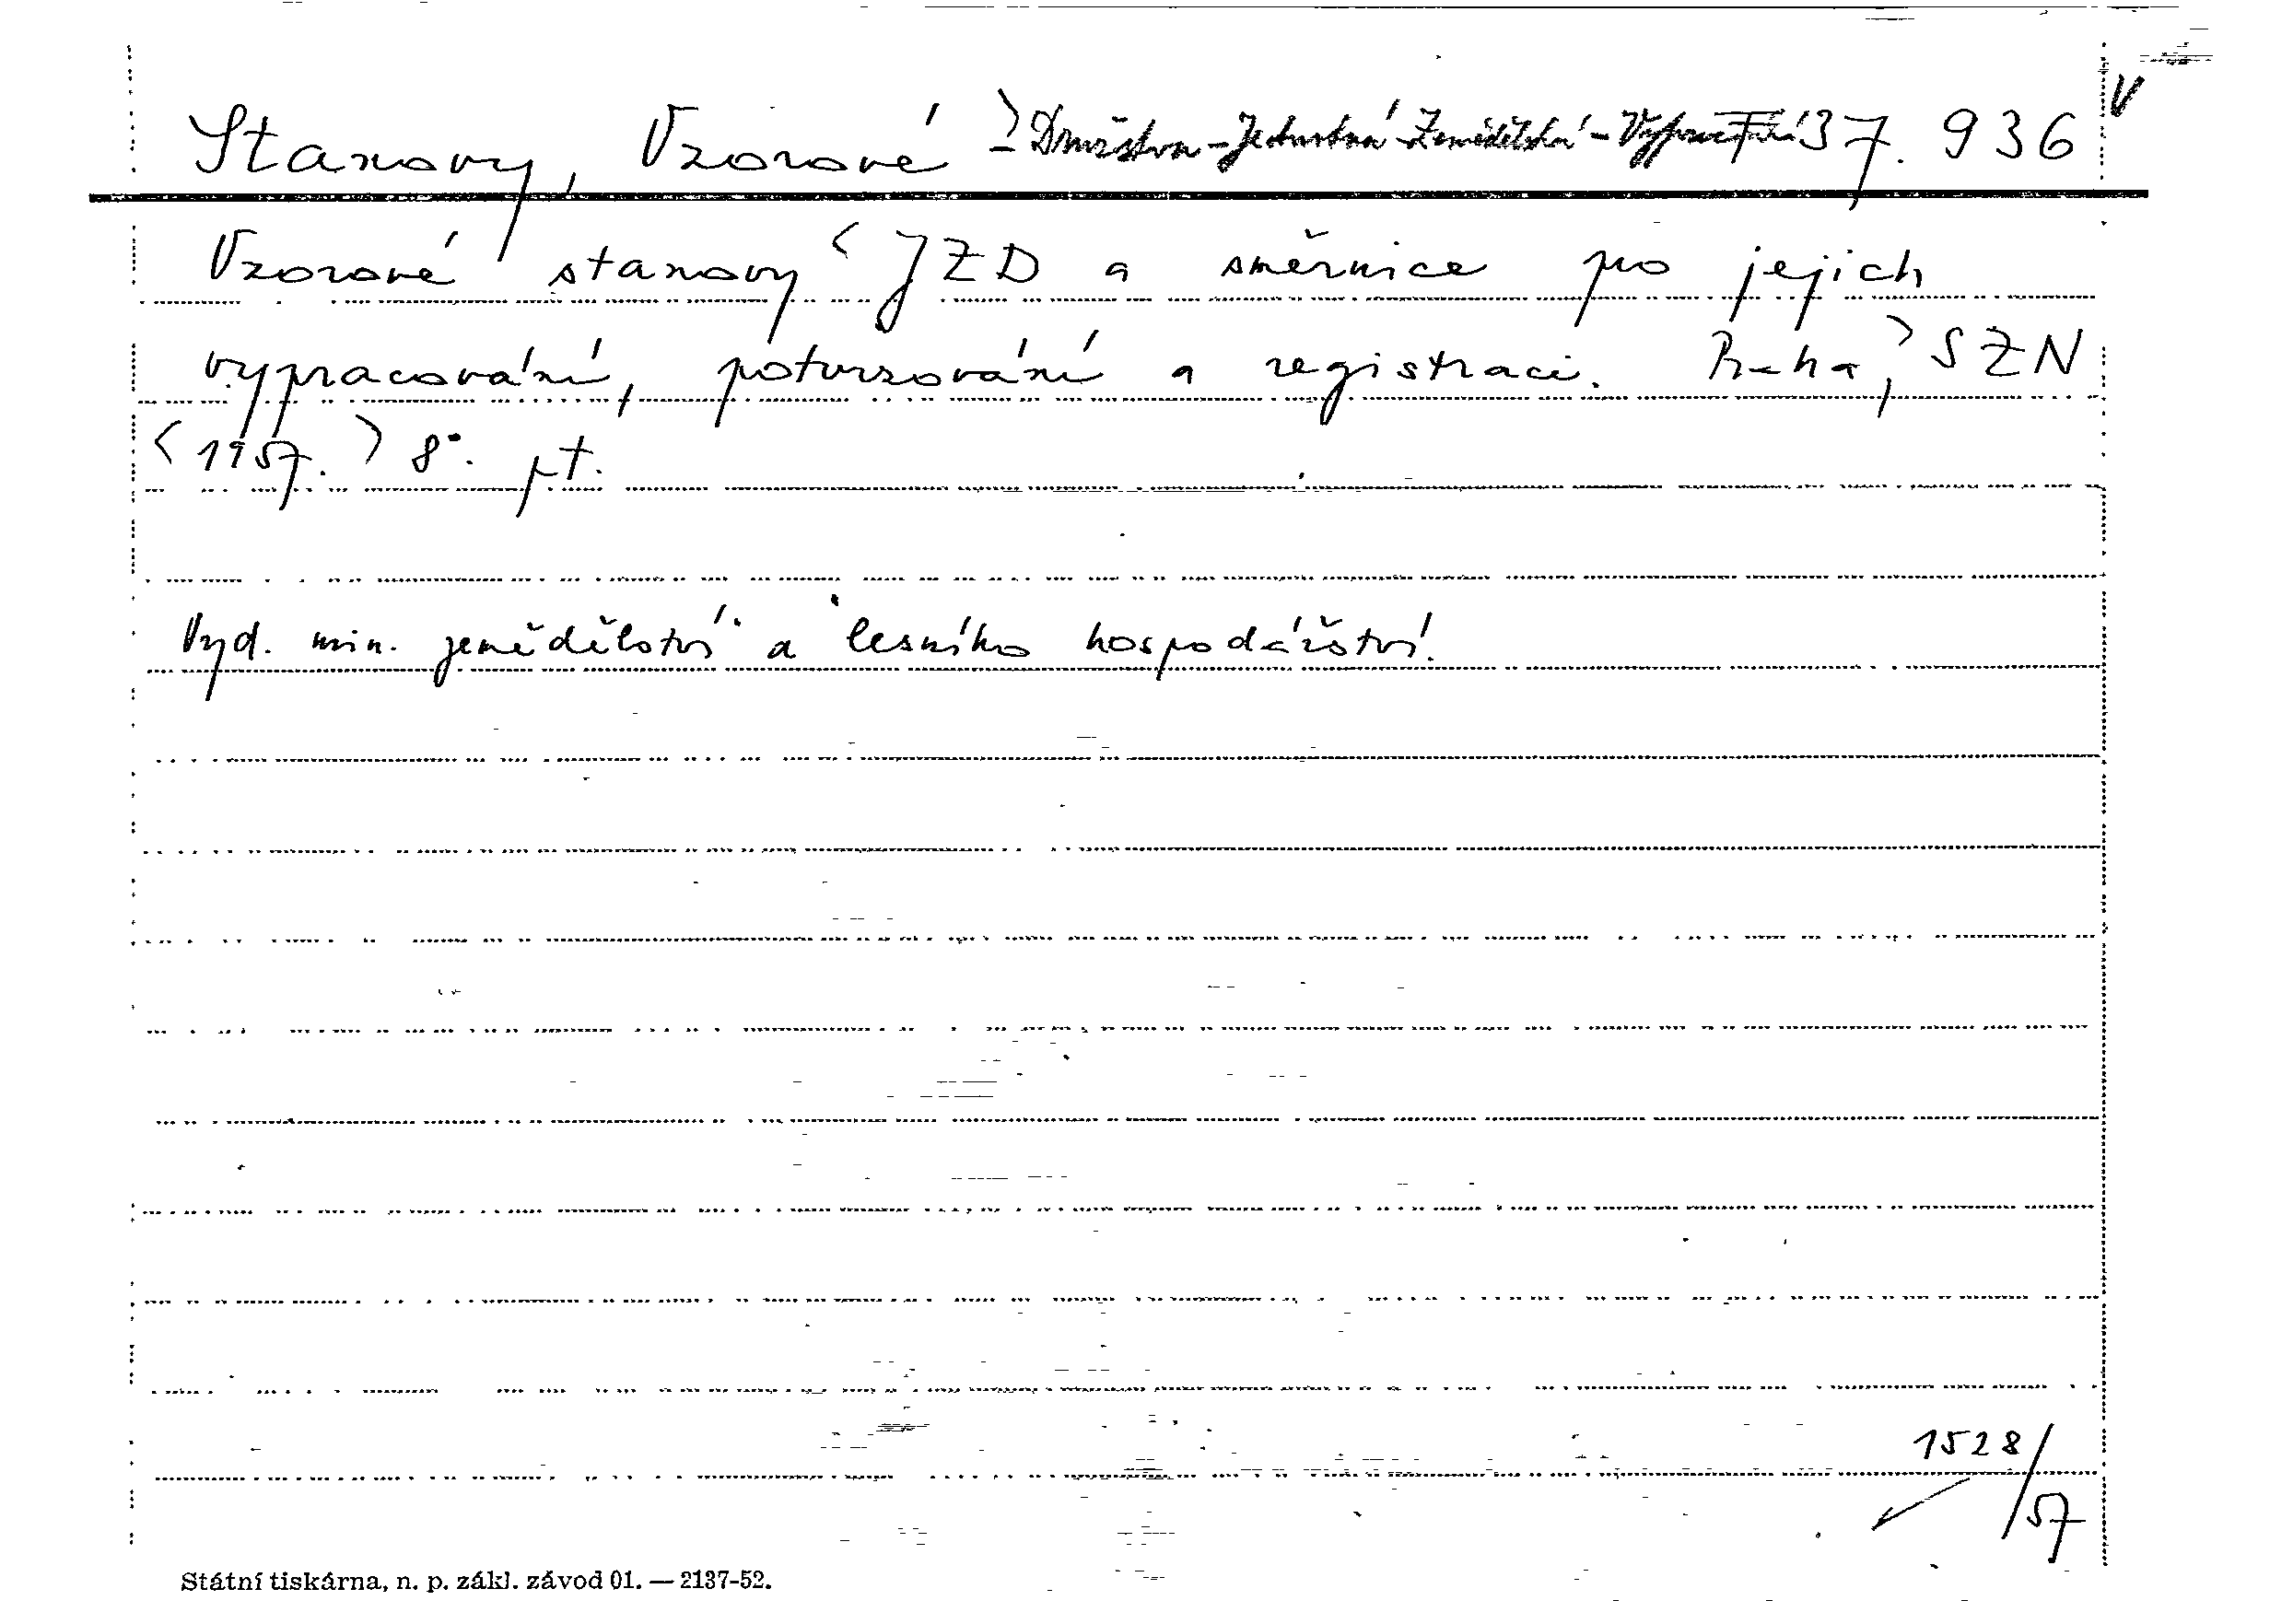 Stanovy, Vzorové > Družstva - Jednotná - Zemědělská - 37.936 V
Vzorové stanovy < JZD a směrnice pro jejich
vypracování, potvrzování a registraci. Praha, > SZN
< 1957. > 8°. pt.
Vyd. min. zemědělství a lesního hospodářství.
1528/
/57
Státní tiskárna, n. p. zákl. závod 01. — 2137-52.